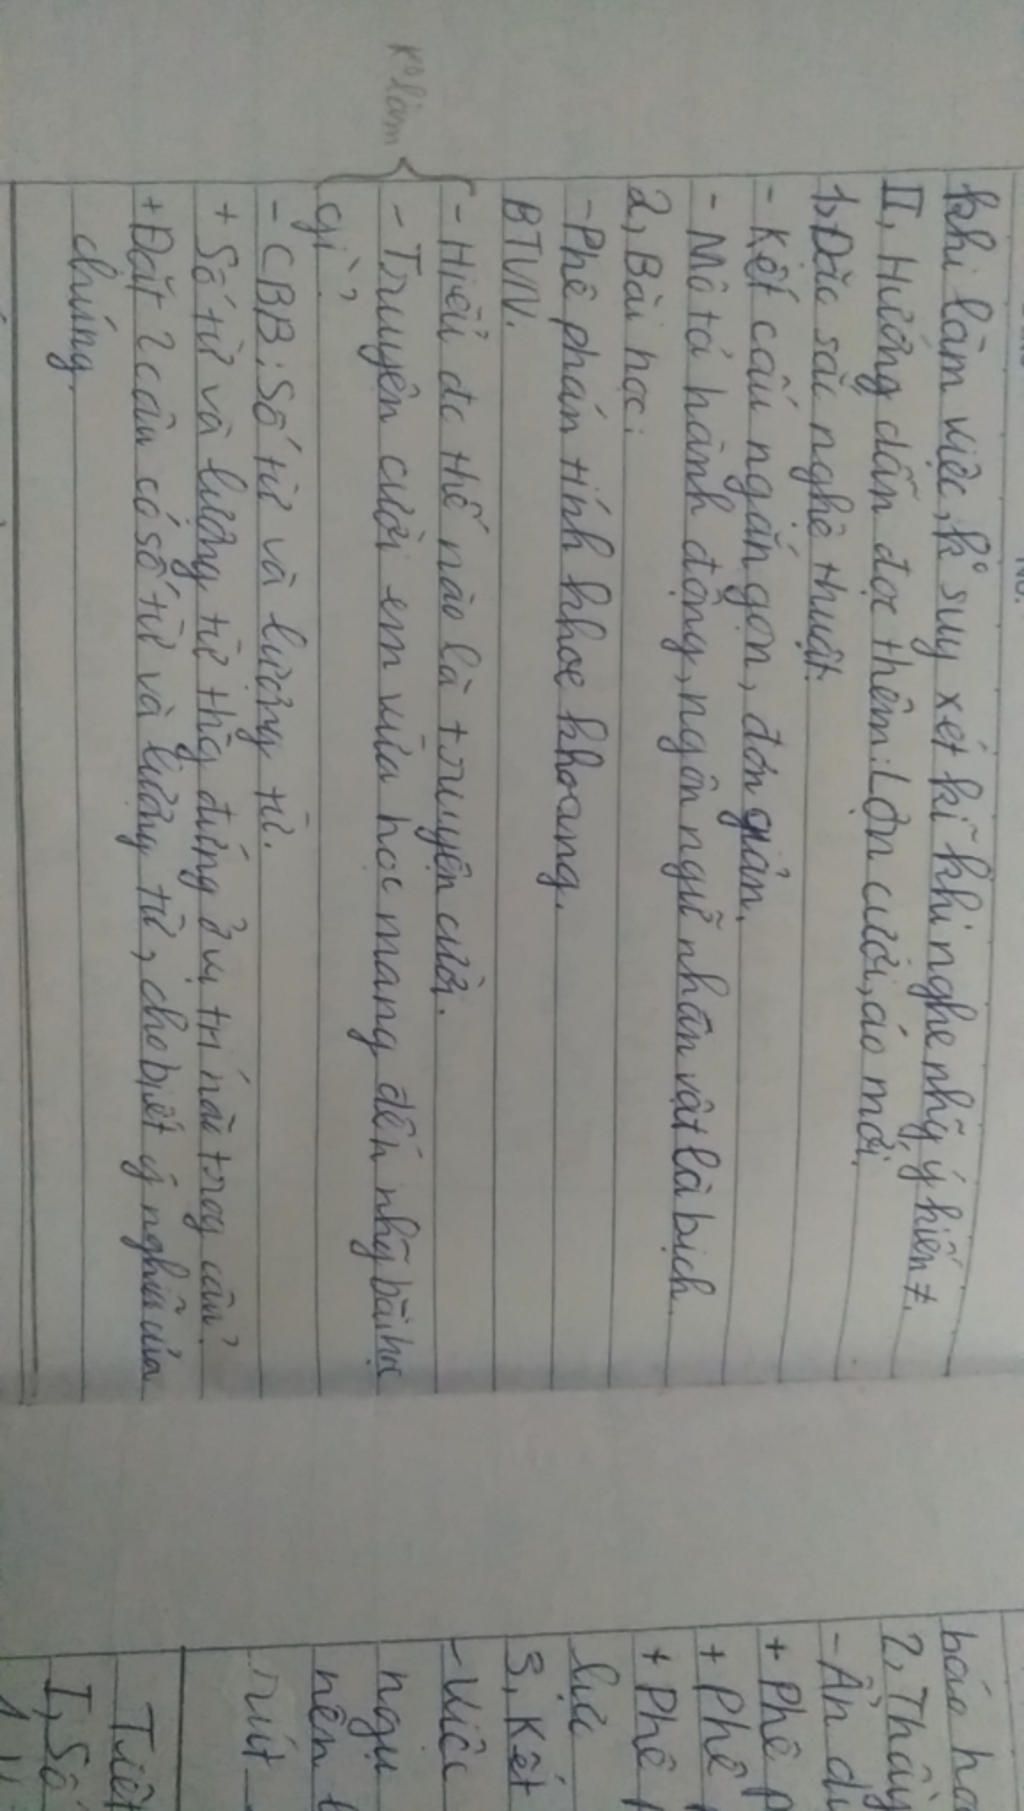 khi làm việc, k° suy xét kĩ khi nghe nhg̃ ý kiến ≠.
II, Hướng dẫn đọc thêm: Lợn cưới, áo mới.
1, Đặc sắc nghệ thuật.
- Kết cấu ngắn gọn, đơn giản.
- Mô tả hành động, ngôn ngữ nhân vật là bịch.
2, Bài học:
- Phê phán tính khoe khoang.
BTVN.
- Hiểu đc thế nào là truyện cười.
k° làm
- Truyện cười em vừa học mang đến nhg̃ bài học
gì?
- CBB: Số từ và lượng từ.
+ Số từ và lượng từ thg đứng ở vị trí nào trog câu?
+ Đặt 2 câu có số từ và lượng từ, cho biết ý nghĩa của
chúng.
No.
báo
2, Thầy
- Ẩn dụ
+ Phê
+ Phê
+ Phê
lực
3, Kết
- Việc
ngụ
nên
rút
Tiết
I, Số